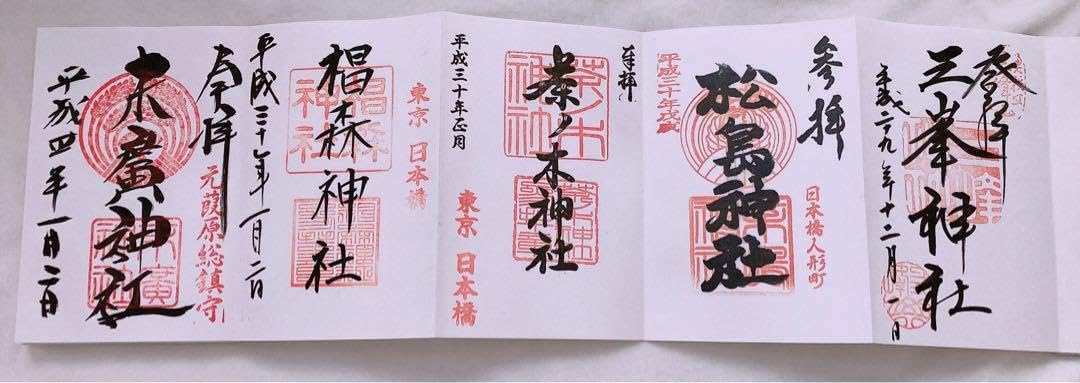 登拝
三峯神社
平成二九年十二月一日
参拝
日本橋人形町
松島神社
平成三十年戊戌
奉拝
茶ノ木神社
平成三十年正月
東京 日本橋
東京 日本橋
椙森神社
平成三十年一月二日
奉拝
元葭原総鎮守
末廣神社
平成四年一月二日